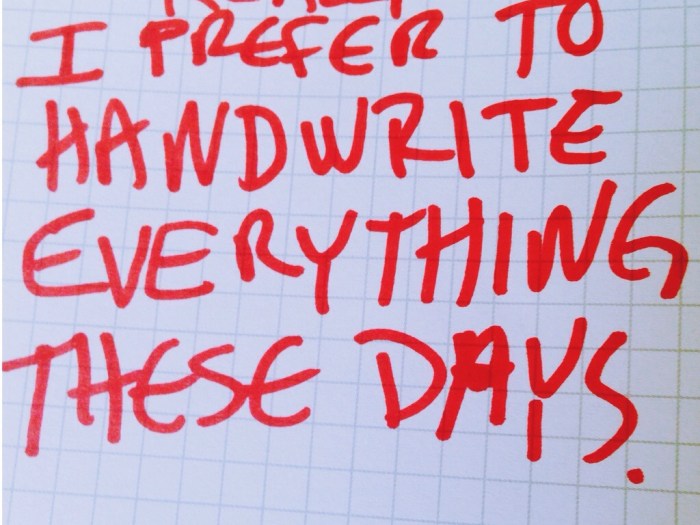 I PREFER TO
HANDWRITE
EVERYTHING
THESE DAYS.